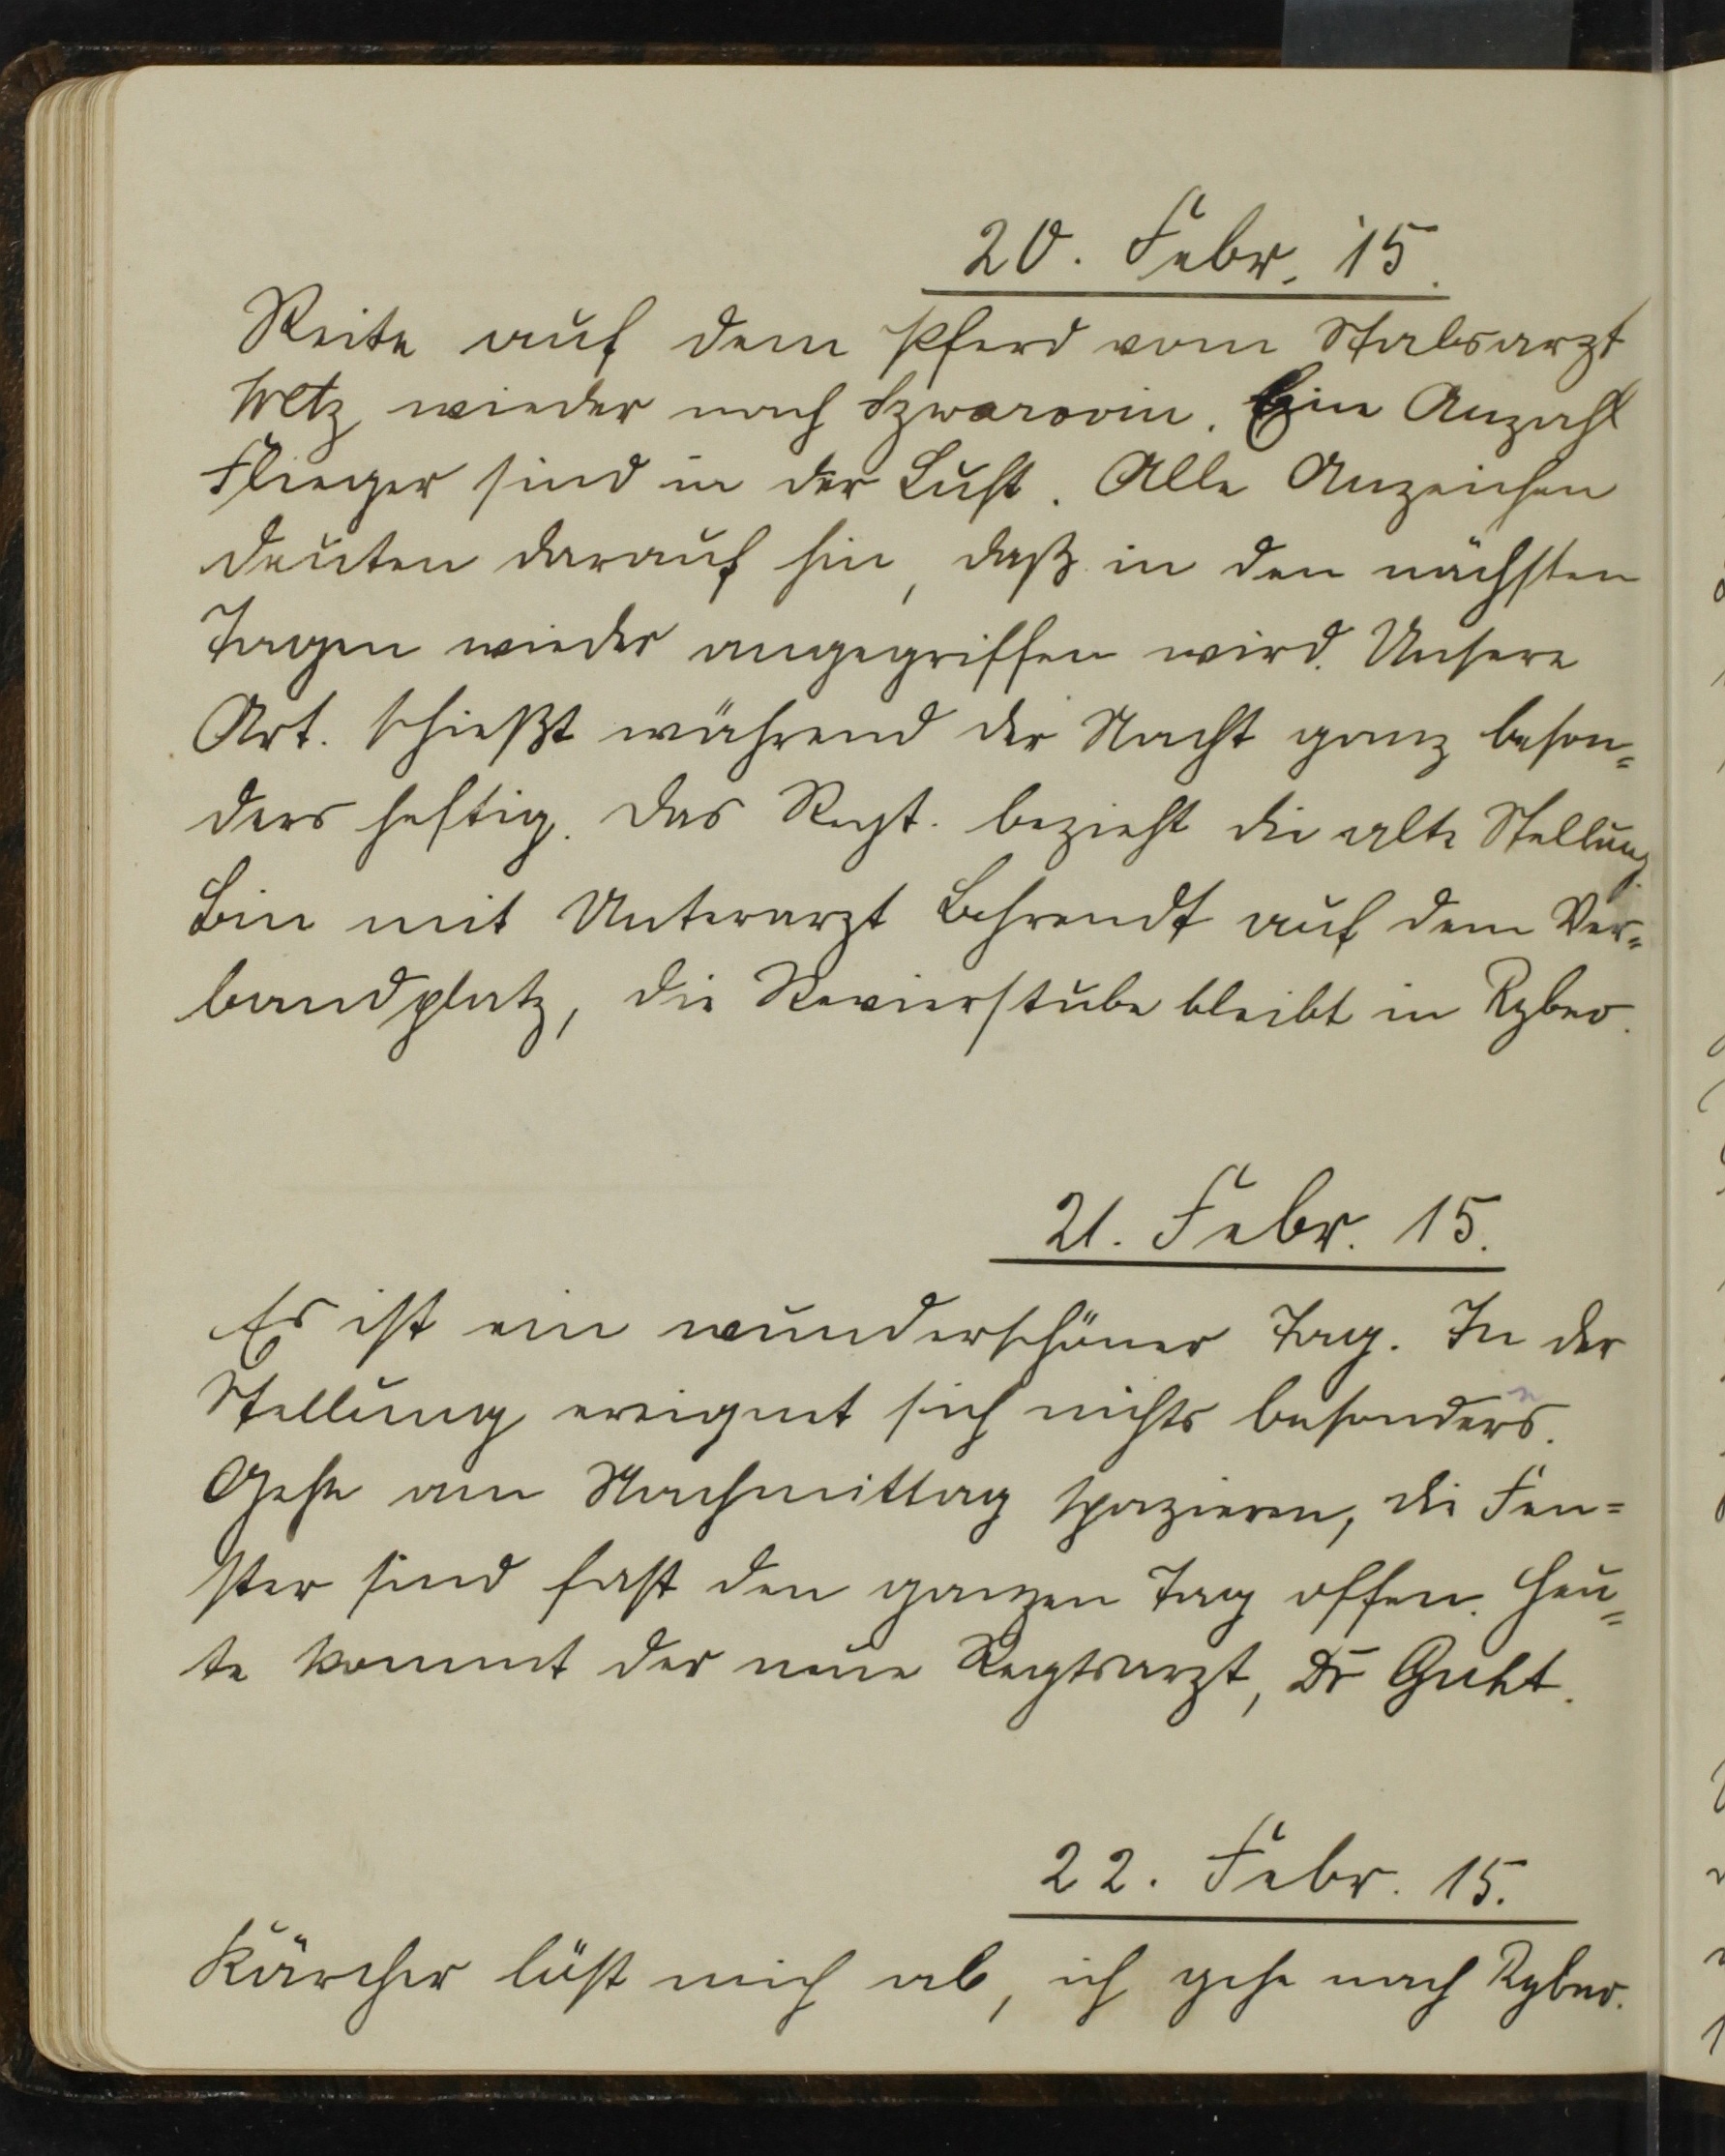 20. Febr. 15.
Reite auf dem Pferd vom Stabsarzt
Wetz wieder nach Szwarovin. Ein Anzahl
Flieger sind in der Luft. Alle Anzeichen
deuten darauf hin, daß in den nächsten
Tagen wieder angegriffen wird. Unsere
Art. schießt während der Nacht ganz beson=
ders heftig. Das Regt. bezieht die alte Stellung.
Bin mit Unterarzt Behrendt auf dem Ver=
bandplatz, die Revierstube bleibt in Rybno.
21. Febr. 15.
Es ist ein wunderschöner Tag. In der
Stellung ereignet sich nichts besonders.
Gehe am Nachmittag spazieren, die Fen=
ster sind fast den ganzen Tag offen. Heu=
te kommt der neue Regtsarzt, Dr
22. Febr. 15.
Kärcher löst mich ab, ich gehe nach Rybno.